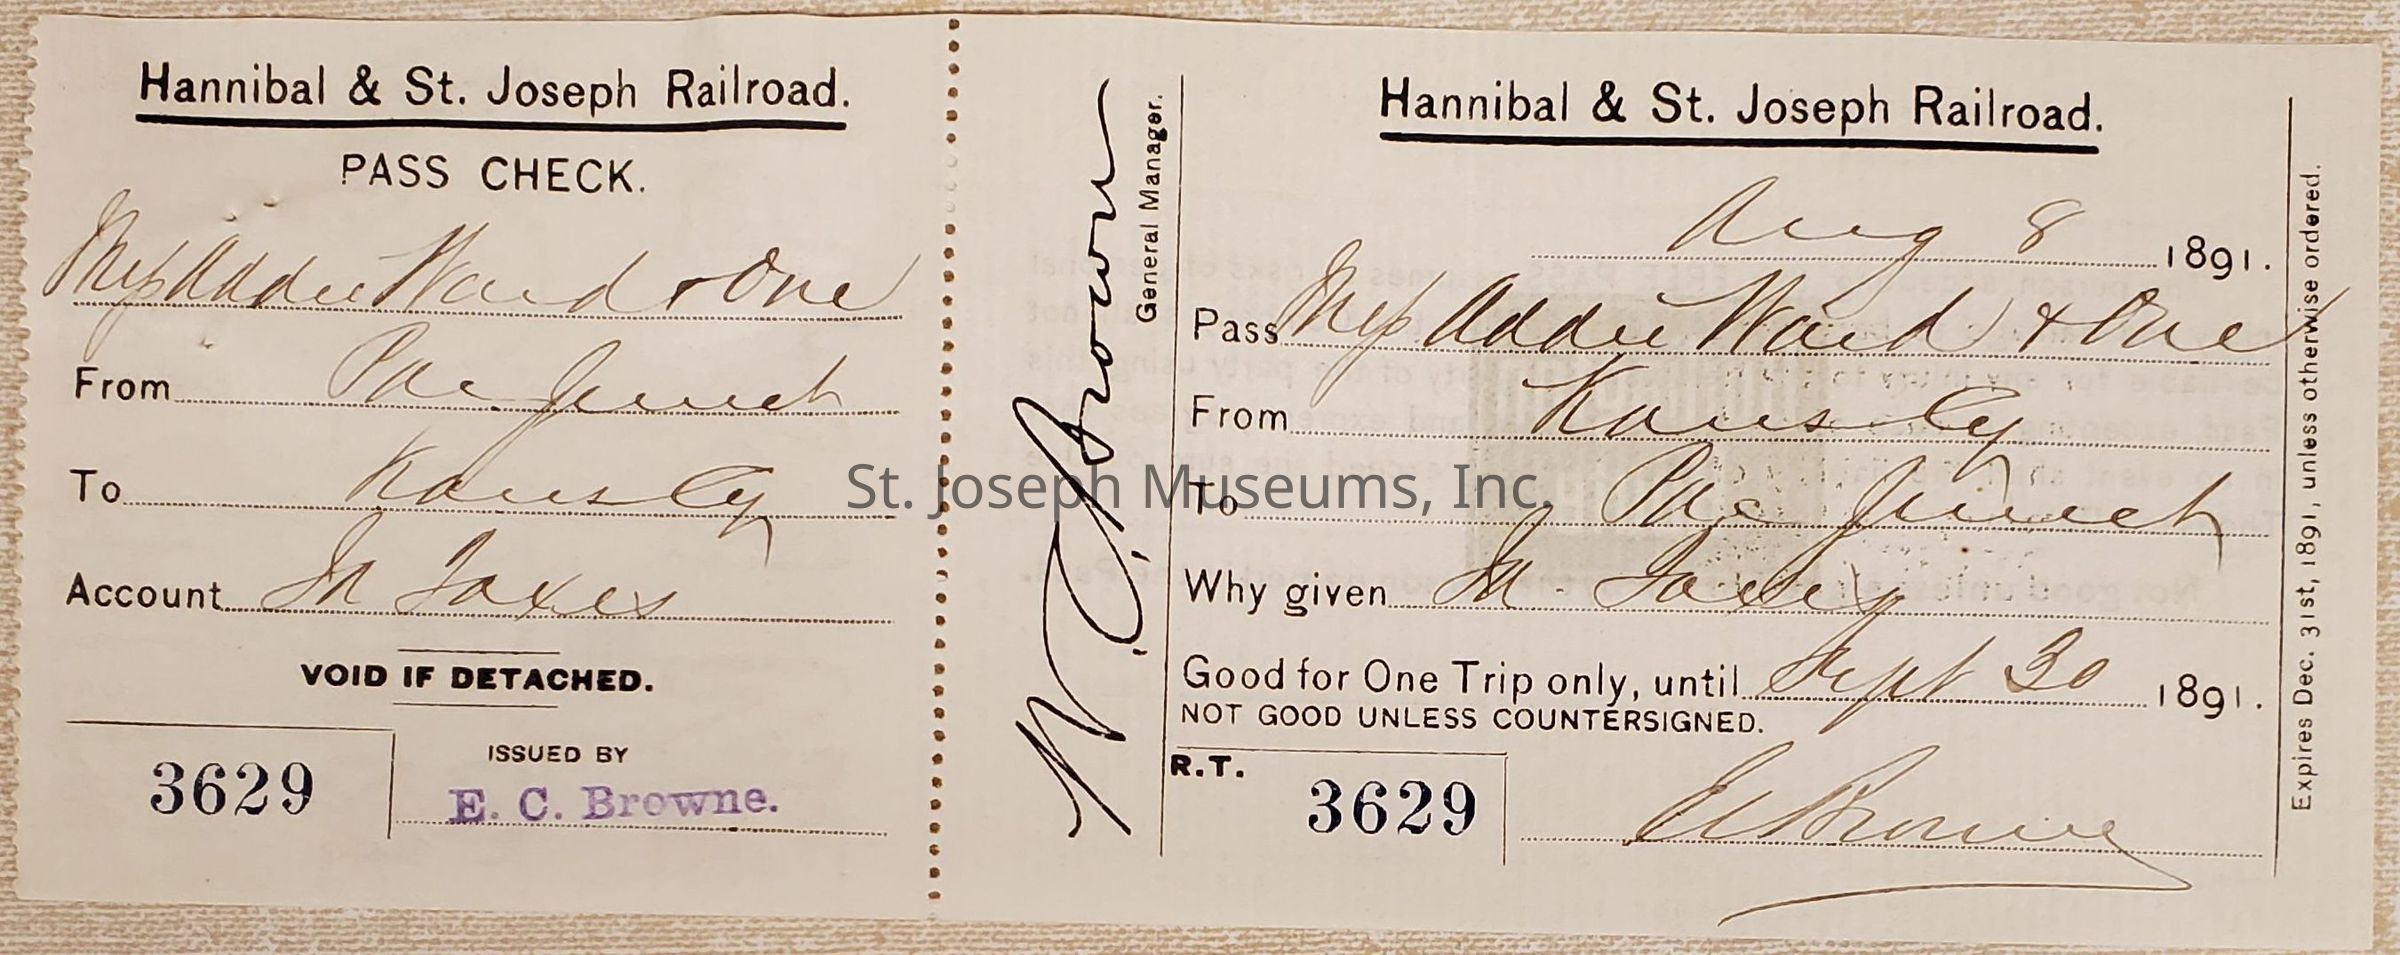 Hannibal & St. Joseph Railroad.
PASS CHECK.
Miss Addie Ward & One
From Pac Junct
To Kans Cy
Account In Taxes
VOID IF DETACHED.
3629
ISSUED BY
E. C. Browne.
W. C. Brown
General Manager.
Hannibal & St. Joseph Railroad.
Aug 8 1891.
Pass Miss Addie Ward & One
From Kans Cy
To Pac Junct
Why given In Taxes
Good for One Trip only, until Sept 30 1891.
NOT GOOD UNLESS COUNTERSIGNED.
R.T. 3629
EC Browne
Expires Dec. 31st, 1891, unless otherwise ordered.
St. Joseph Museums, Inc.